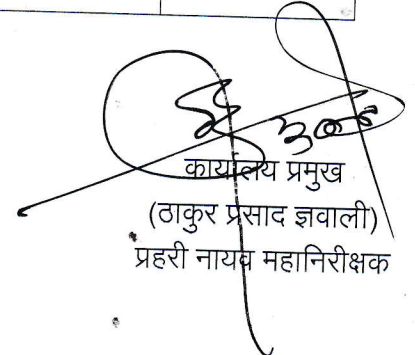 कार्यालय प्रमुख
(ठाकुर प्रसाद ज्ञवाली)
प्रहरी नायव महानिरीक्षक